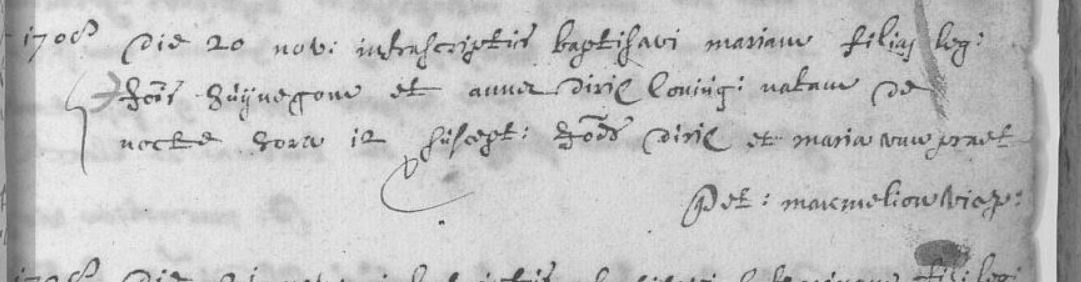 1708 Die 20 nov: infrascriptus baptisavi mariam filia legi:
Jois Huijnegom et anna Dirix Coniug: natam de
nocte hora 12 suscept: Joes Dirix et maria van praet
Pet: marmelion vicep:
1708 Die 21